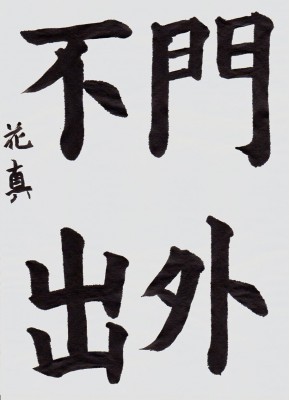 門外
不出
花真